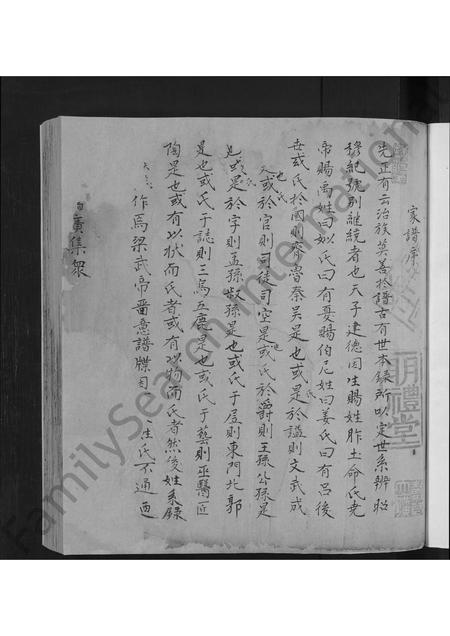 家譜序
先正有云治族莫善於譜古有世本錄所以定世系辨昭
穆紀號別繼統者也天子建德因生賜姓胙土命氏堯
帝賜禹姓曰姒氏曰有夏賜伯尼姓曰姜氏曰有呂後
世或氏於國則齊魯秦吳是也或是於謚則文武成
也或於官則司徒司空是或氏於爵則王孫公孫是
也或是於字則孟孫叔孫是也或氏于居則東門北郭
是也或氏于誌則三烏五鹿是也或氏于藝則巫醫匠
陶是也或有以狀而氏者或有以物而氏者然後姓系錄
作焉梁武帝番意譜牒
注氏不通西
廣集眾
明禮堂
FamilySearch International